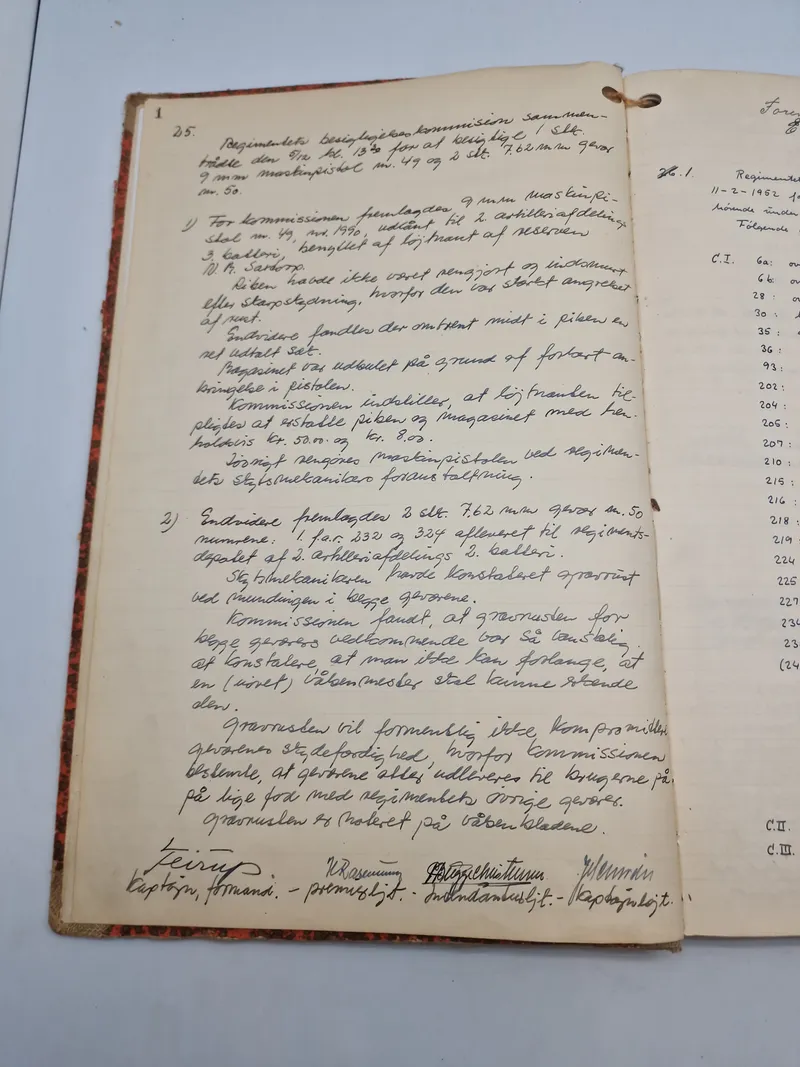 1
25.
Regimentets besigtigelseskommision sammen-
trådte den 5/12 kl. 13³⁰ for at besigtige 1 stk.
9 mm maskinpistol m. 49 og 2 stk. 7.62 mm gevær
m. 50.
1) For kommissionen fremlagdes 9 mm maskinpi-
stol m. 49, nr. 1990, udlånt til 2. artilleriafdelings
3. batteri, benyttet af løjtnant af reserven
Piben havde ikke været rengjort og indsmurt
efter skarpskydning, hvorfor den var stærkt angrebet
af rust.
Endvidere fandtes der omtrent midt i piben en
ret udtalt sæk.
Magasinet var udbulet på grund af forkert an-
bringelse i pistolen.
Kommissionen indstiller, at løjtnanten til-
pligtes at erstatte piben og magasinet med hen-
holdsvis kr. 50.00 og kr. 8.00.
Iøvrigt rengøres maskinpistolen ved regimen-
tets skytsmekanikers foranstaltning.
2) Endvidere fremlagdes 2 stk. 7.62 mm gevær m. 50
numrene: 1. f.a.r. 232 og 324 afleveret til regiments-
depotet af 2. artilleriafdelings 2. batteri.
Skytsmekanikeren havde konstateret gravrust
ved mundingen i begge geværene.
Kommissionen fandt, at gravrusten for
begge geværers vedkommende var så vanskelig
at konstatere, at man ikke kan forlange, at
en (uøvet) våbenmester skal kunne erkende
den.
Gravrusten vil formentlig ikke kompromittere
geværenes skydefærdighed, hvorfor kommissionen
bestemte, at geværene atter udleveres til brugerne på
på lige fod med regimentets øvrige geværer.
Gravrusten er noteret på våbenbladene.
Kaptajn, formand. - premierljt. - Intendanturljt. - Kaptajnløjt.
H.1. Regimentet
11-2-1952
hørende under
Følgende
C.I. 6a:
6b:
28:
30:
35:
36:
93:
202:
204:
205:
207:
210:
215:
216:
218:
219:
224
225
227
C.II.
C.III.